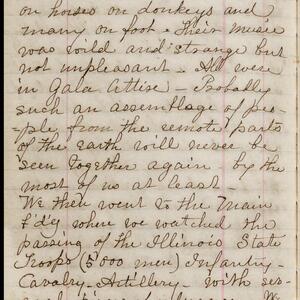 on horses on donkeys and
many on foot - their music
was wild and strange but
not unpleasant - All were
in Gala Attire - Probally
such an assemblage of pe-
ple from the remote parts
of the earth will never be
seen together again - by the
most of us at least -
We then went to the Main
b'd'g where we watched the
passing of the Illinois State
Troops (5,000 men) Infantry -
Cavalry - Artillery - with